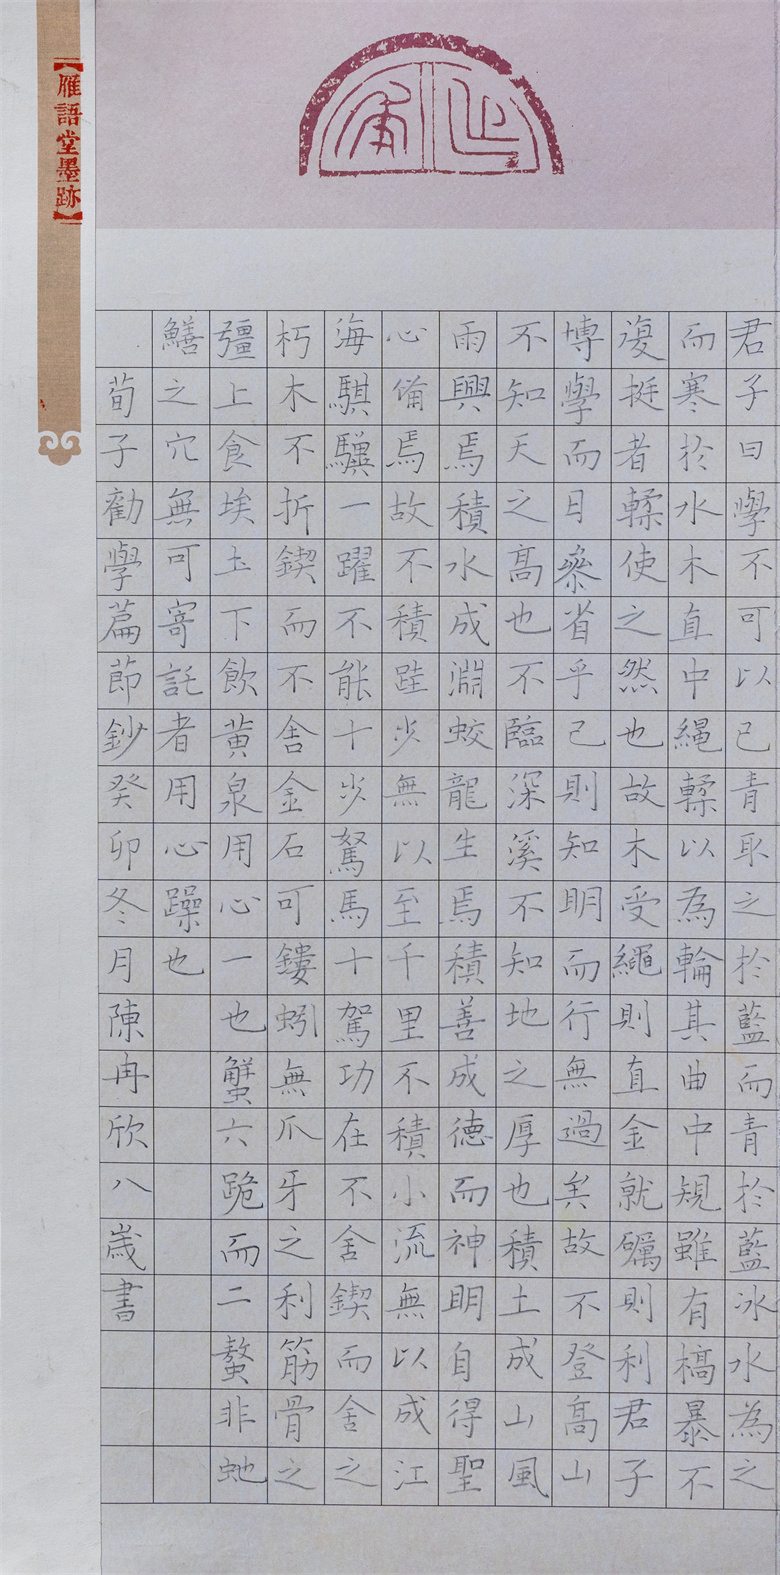 君子曰學不可以已青取之於藍而青於藍冰水為之
而寒於水木直中繩輮以為輪其曲中規雖有槁暴不
復挺者輮使之然也故木受繩則直金就礪則利君子
博學而日參省乎己則知明而行無過矣故不登高山
不知天之高也不臨深溪不知地之厚也積土成山風
雨興焉積水成淵蛟龍生焉積善成德而神明自得聖
心備焉故不積跬步無以至千里不積小流無以成江
海騏驥一躍不能十步駑馬十駕功在不舍鍥而舍之
朽木不折鍥而不舍金石可鏤蚓無爪牙之利筋骨之
彊上食埃土下飲黃泉用心一也蟹六跪而二螯非虵
鱔之穴無可寄託者用心躁也
荀子勸學篇節鈔癸卯冬月陳冉欣八歲書
【雁語堂墨跡】